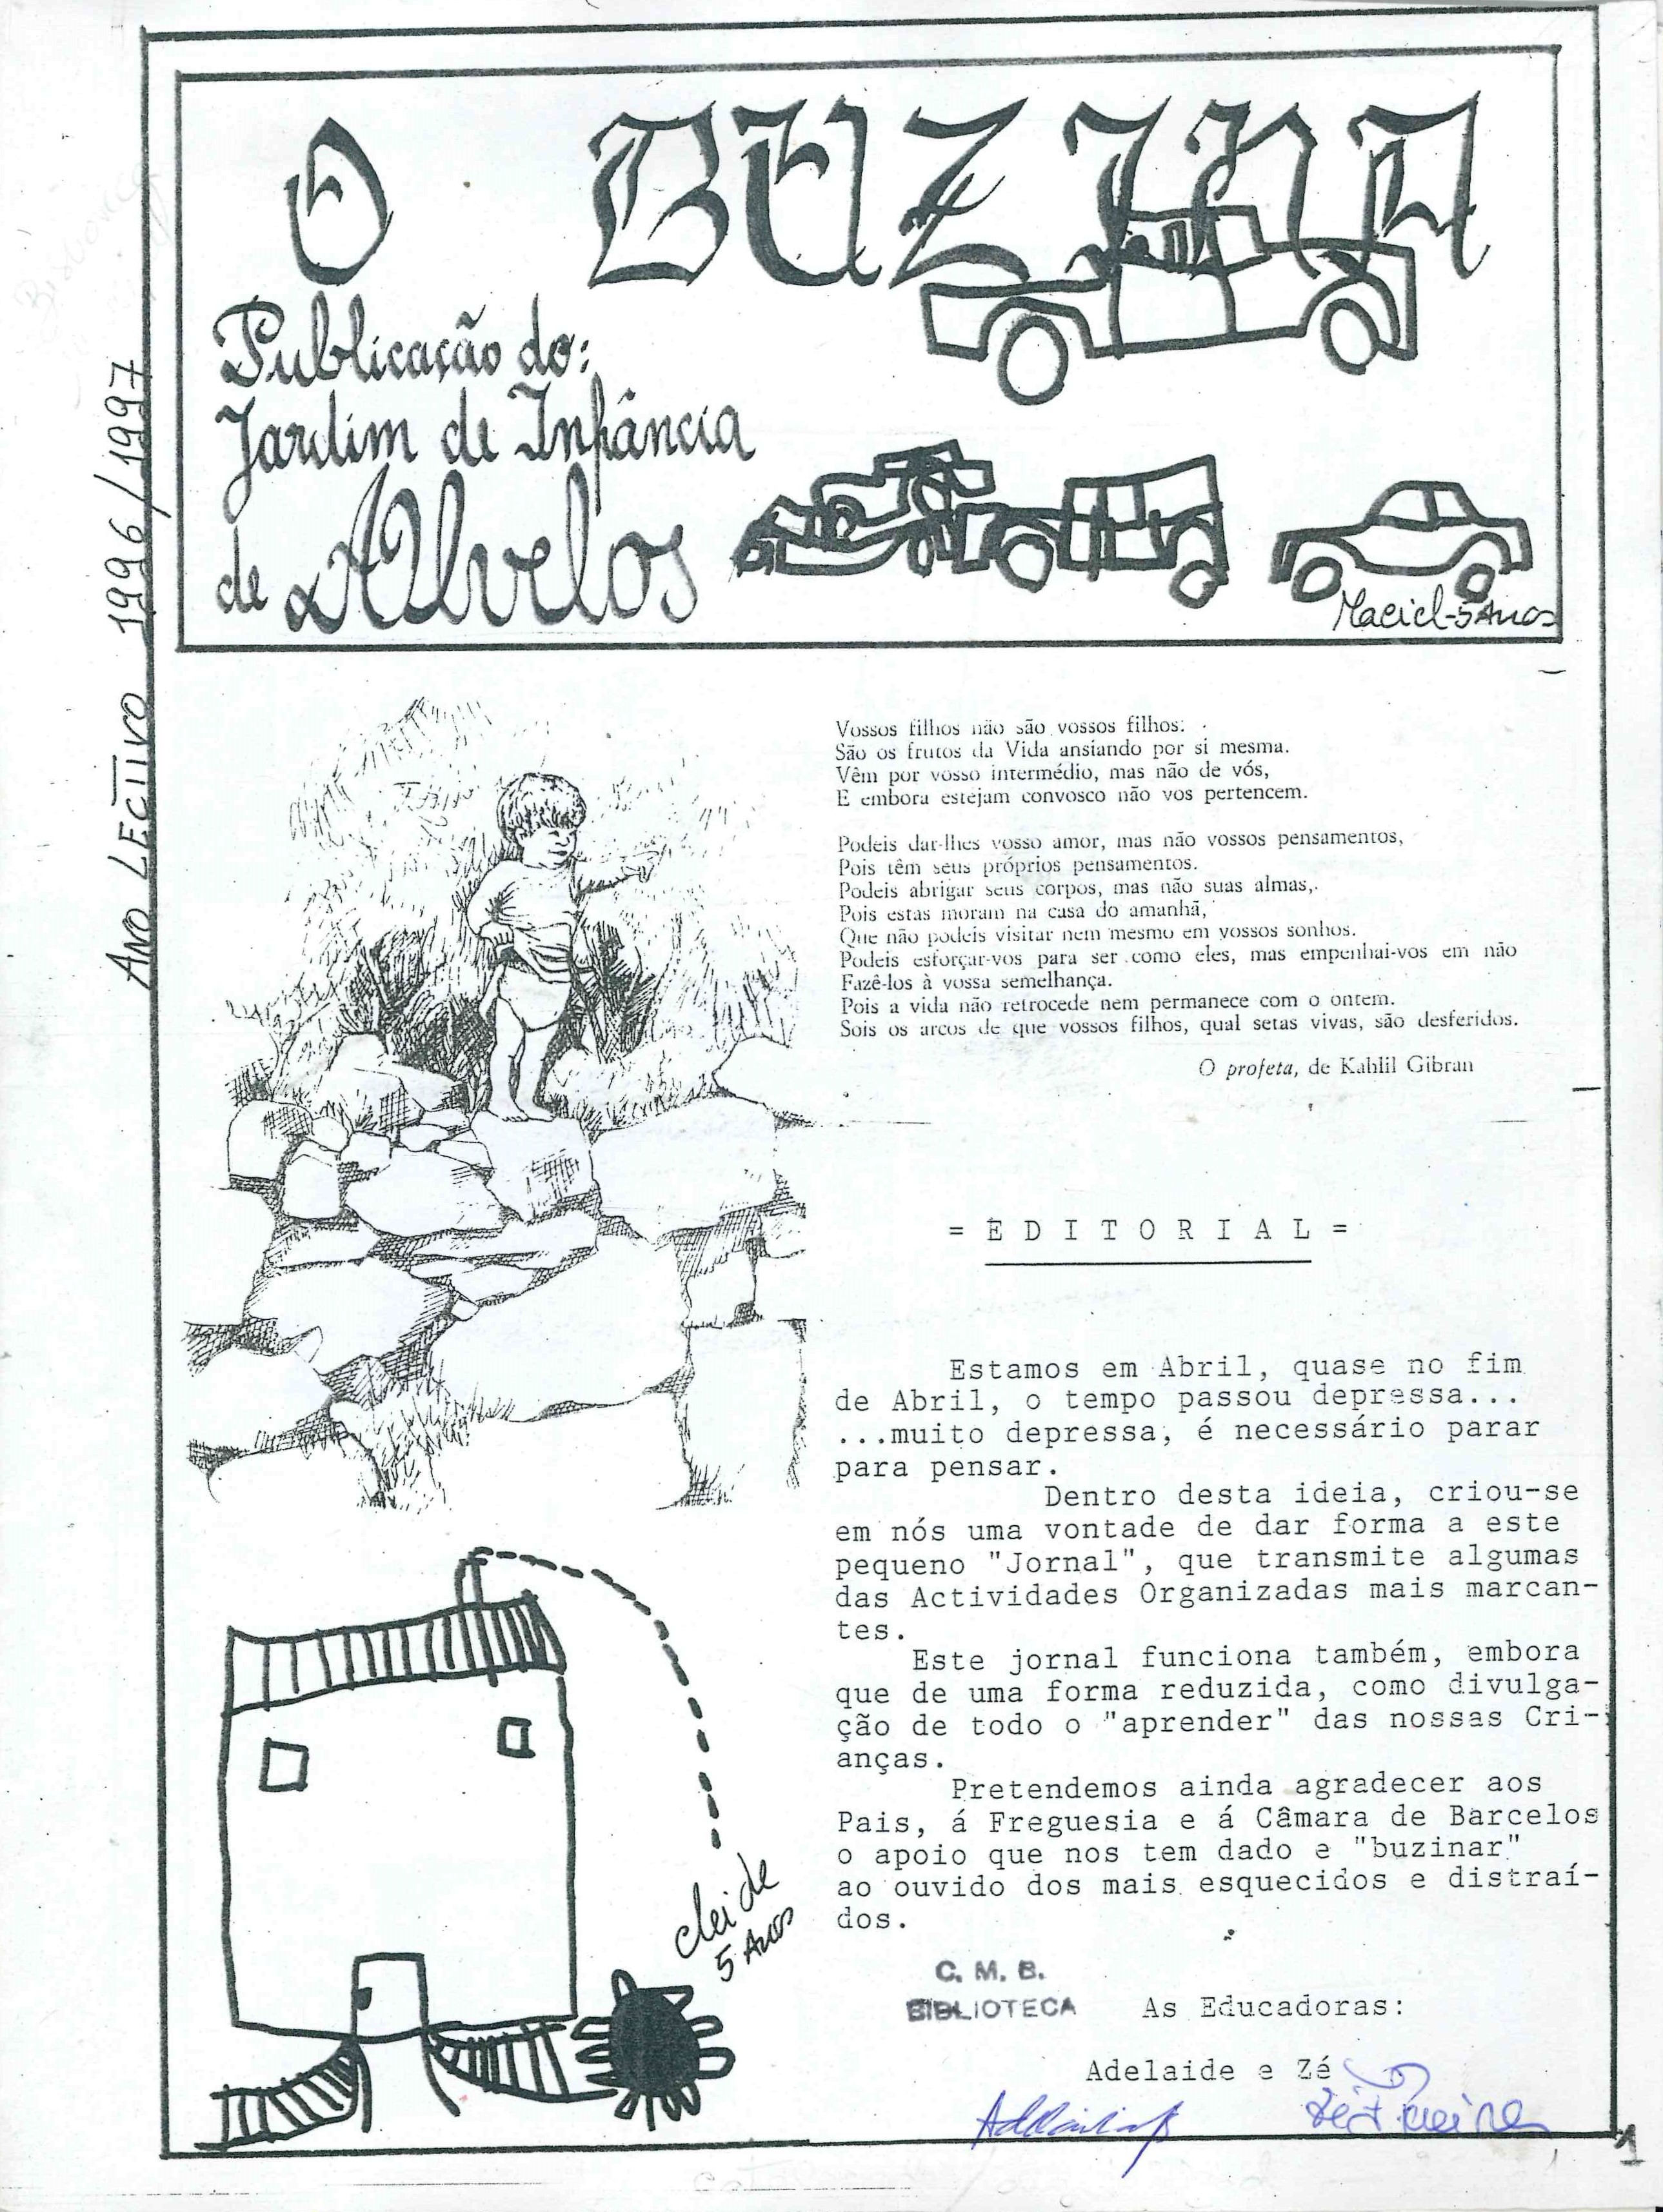 O BUZINA
Publicação do:
Jardim de Infância
de Alvelos
Maciel-5 Anos
Ano Lectivo 1996/1997
Vossos filhos não são vossos filhos:
São os frutos da Vida ansiando por si mesma.
Vêm por vosso intermédio, mas não de vós,
E embora estejam convosco não vos pertencem.
Podeis dar-lhes vosso amor, mas não vossos pensamentos,
Pois têm seus próprios pensamentos.
Podeis abrigar seus corpos, mas não suas almas,
Pois estas moram na casa do amanhã,
Que não podeis visitar nem mesmo em vossos sonhos.
Podeis esforçar-vos para ser como eles, mas empenhai-vos em não
Fazê-los à vossa semelhança.
Pois a vida não retrocede nem permanece com o ontem.
Sois os arcos de que vossos filhos, qual setas vivas, são desferidos.
O profeta, de Kahlil Gibran
= E D I T O R I A L =
Estamos em Abril, quase no fim
de Abril, o tempo passou depressa...
...muito depressa, é necessário parar
para pensar.
Dentro desta ideia, criou-se
em nós uma vontade de dar forma a este
pequeno "Jornal", que transmite algumas
das Actividades Organizadas mais marcan-
tes.
Este jornal funciona também, embora
que de uma forma reduzida, como divulga-
ção de todo o "aprender" das nossas Cri-
anças.
Pretendemos ainda agradecer aos
Pais, á Freguesia e á Câmara de Barcelos
o apoio que nos tem dado e "buzinar"
ao ouvido dos mais esquecidos e distraí-
dos.
cleide
5 Anos
C. M. B.
BIBLIOTECA
As Educadoras:
Adelaide e Zé
1